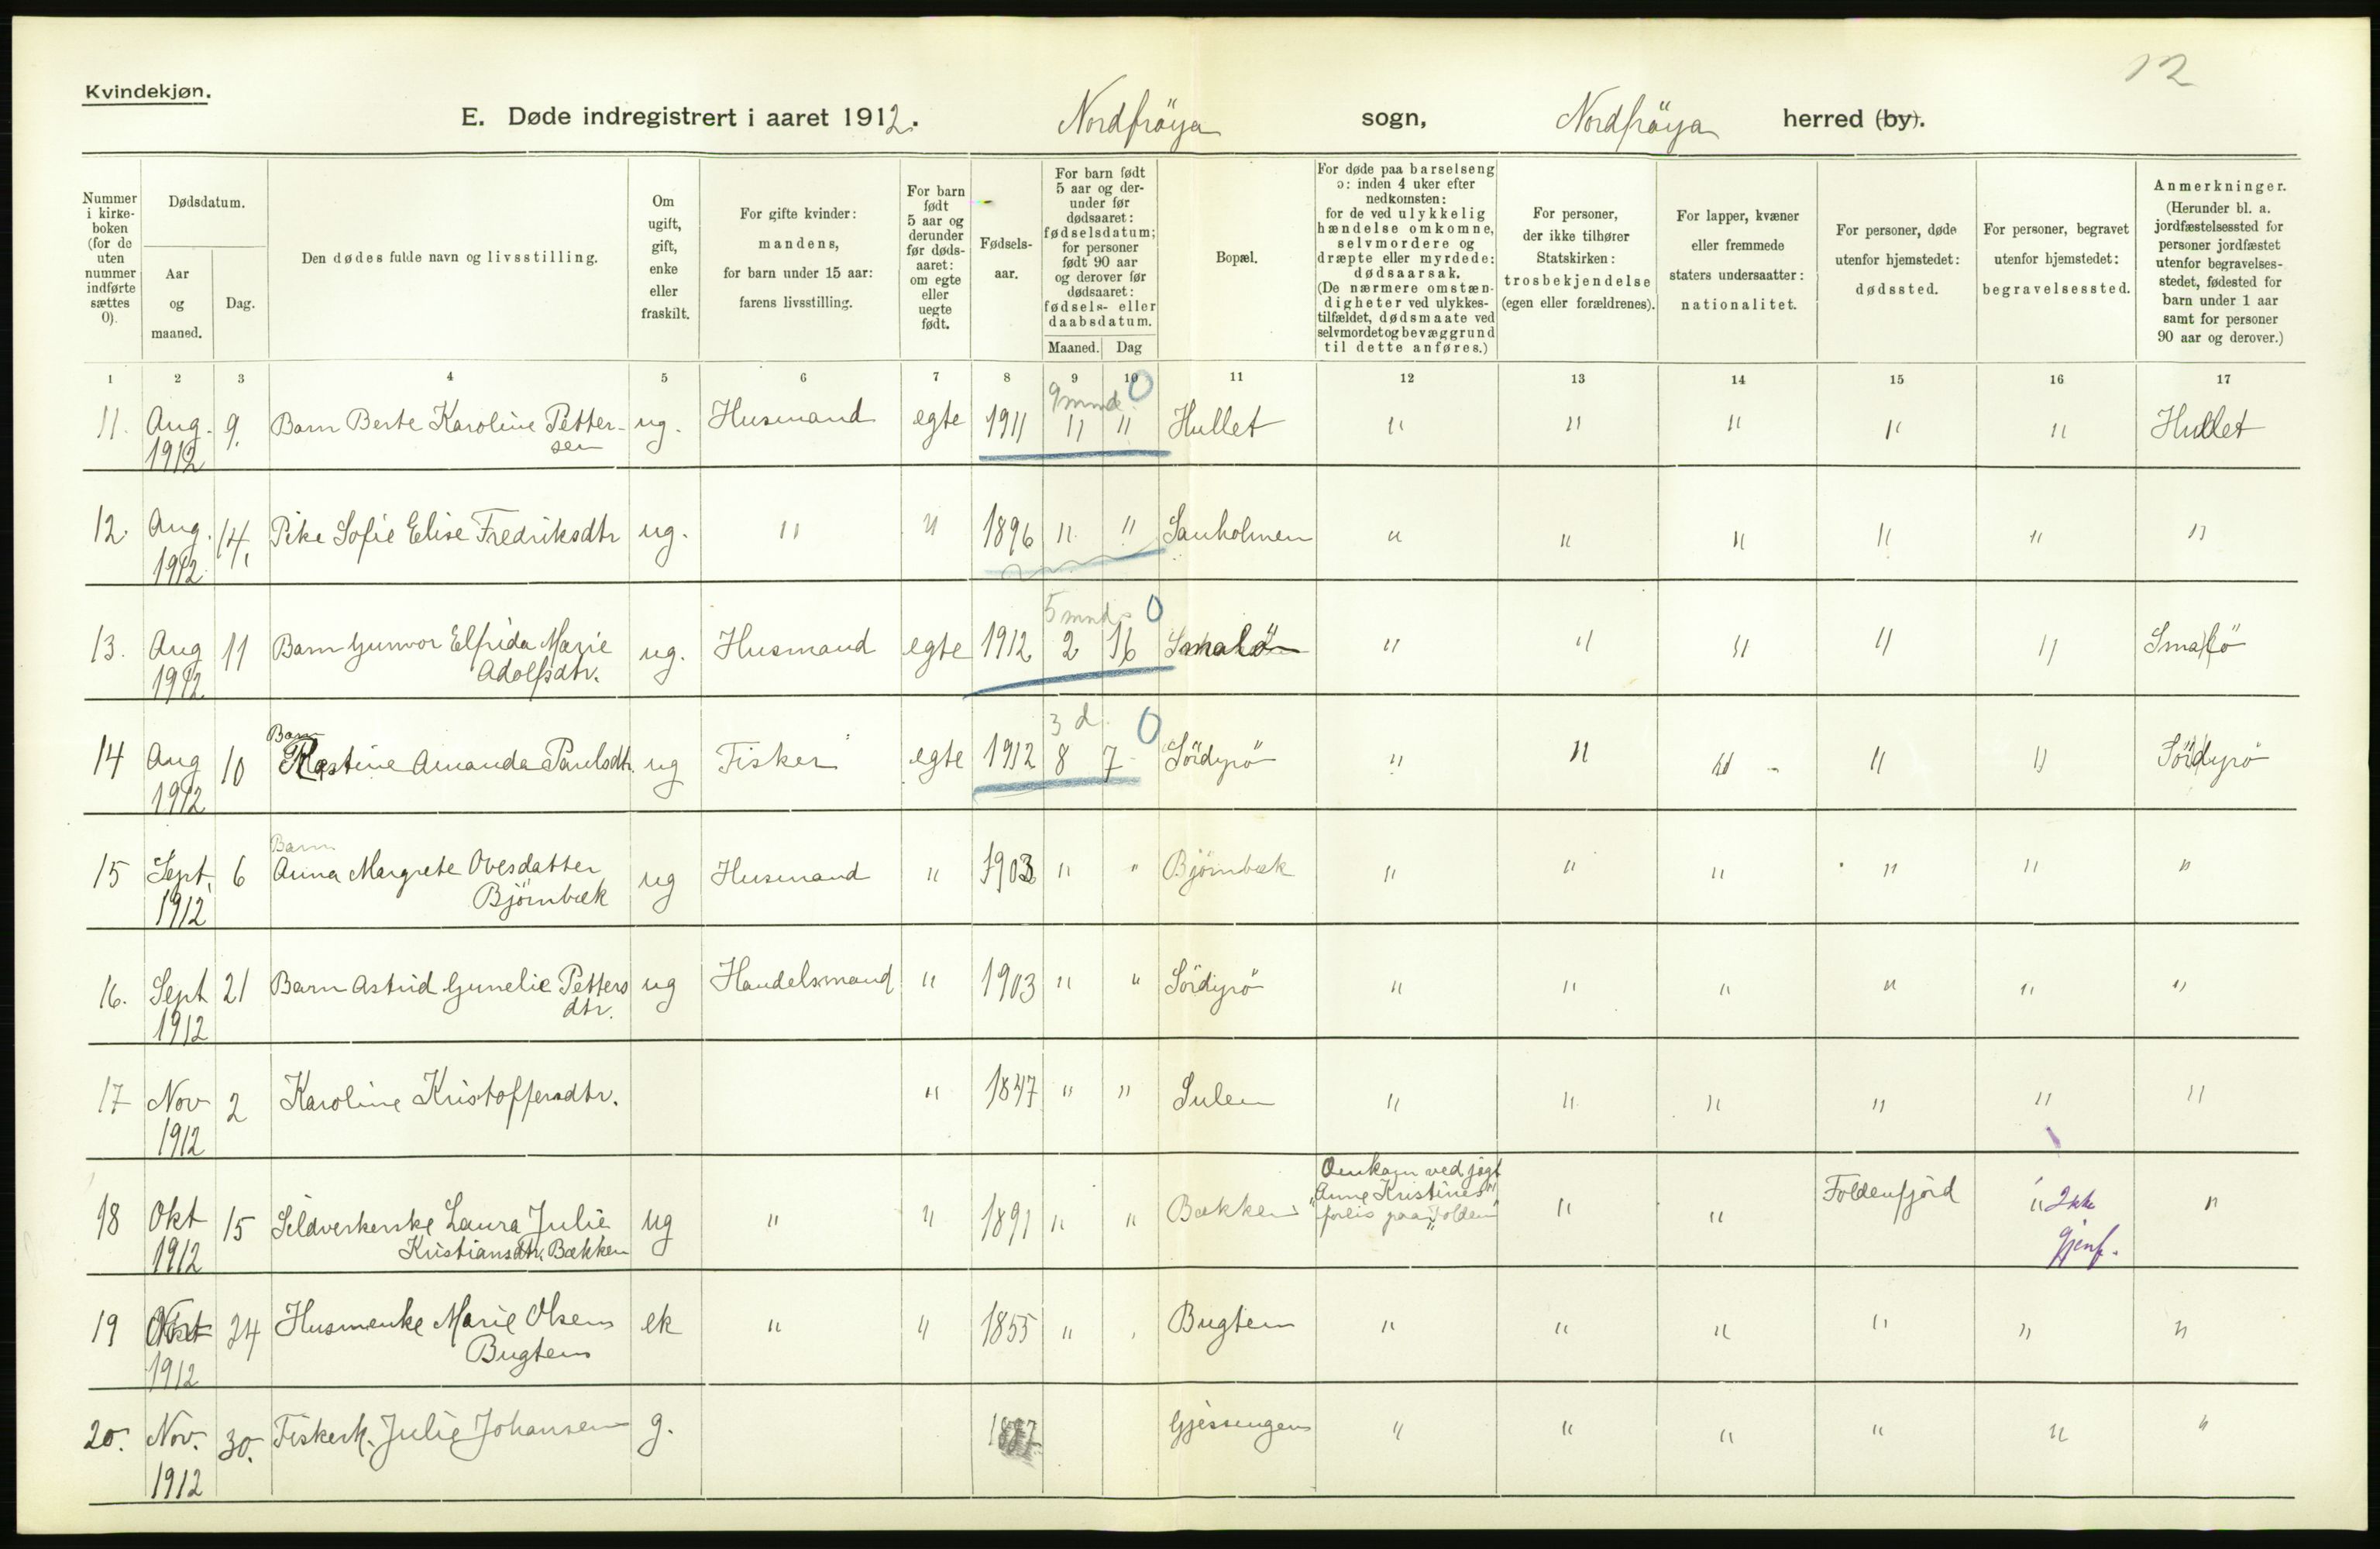 12
Kvindekjøn.
E. Døde indregistrert i aaret 1912. Nordfröya sogn, Nordfröya herred (by).
Nummer i kirke- boken (for de uten nummer indførte sættes 0).
Dødsdatum.
Aar og maaned.
Dag.
Den dødes fulde navn og livsstilling.
Om ugift, gift, enke eller fraskilt.
For gifte kvinder: mandens, for barn under 15 aar: farens livsstilling.
For barn født 5 aar og derunder før døds- aaret: om egte eller uegte født.
Fødsels- aar.
For barn født 5 aar og der- under før dødsaaret: fødselsdatum; for personer født 90 aar og derover før dødsaaret: fødsels- eller daabsdatum.
Maaned. Dag
Bopæl.
For døde paa barselseng ɔ: inden 4 uker efter nedkomsten: for de ved ulykkelig hændelse omkomne, selvmordere og dræpte eller myrdede: dødsaarsak. (De nærmere omstæn- digheter ved ulykkes- tilfældet, dødsmaate ved selvmordet og bevæggrund til dette anføres.)
For personer, der ikke tilhører Statskirken: trosbekjendelse (egen eller forældrenes).
For lapper, kvæner eller fremmede staters undersaatter: nationalitet.
For personer, døde utenfor hjemstedet: dødssted.
For personer, begravet utenfor hjemstedet: begravelsessted.
Anmerkninger. (Herunder bl. a. jordfæstelsessted for personer jordfæstet utenfor begravelses- stedet, fødested for barn under 1 aar samt for personer 90 aar og derover.)
1 2 3 4 5 6 7 8 9 10 11 12 13 14 15 16 17
9 mnd. 0
11. Aug. 9. Barn Berte Karoline Petter- ug. Husmand egte 1911 11 " Hullet " " " " " Hullet
1912 sen
12. Aug. 14. Pike Sofie Elise Fredriksdtr ug. " " 1896 " " Sauholmen " " " " " "
1912
5 mnd. 0
13. Aug 11 Barn Gunvor Elfrida Marie ug. Husmand egte 1912 2 16 Smalö " " " " " Smalö
1912 Adolfsdtr.
Barn 3 d. 0
14 Aug 10 Amanda Paulsdtr. ug Fisker egte 1912 8 7 Sördyrö " " " " " Sördyrö
1912
Barn
15 Sept. 6 Anna Margrete Ovesdatter ug Husmand " 1903 " " Björnbæk " " " " " "
1912 Björnbæk
16. Sept 21 Barn Astrid Gunelie Petters ug Handelsmand " 1903 " " Sördyrö " " " " " "
1912 dtr.
17 Nov 2 Karoline Kristoffersdtr. " 1847 " " Sulen " " " " " "
1912
Omkom ved jagt
18 Okt 15 Sildverkerske Laura Julie ug " " 1891 " " Bækken "Anne Kristines" " " Foldenfjord " Ikke "
1912 Kristiansdtr. Bækken forlis paa "Folden" gjenf.
19 Okt 24 Husmenke Marie Olsen ek " " 1855 " " Bugten " " " " " "
1912 Bugten
20. Nov. 30. Fiskerk. Julie Johansen g. Gjessingen " " " " " "
1912